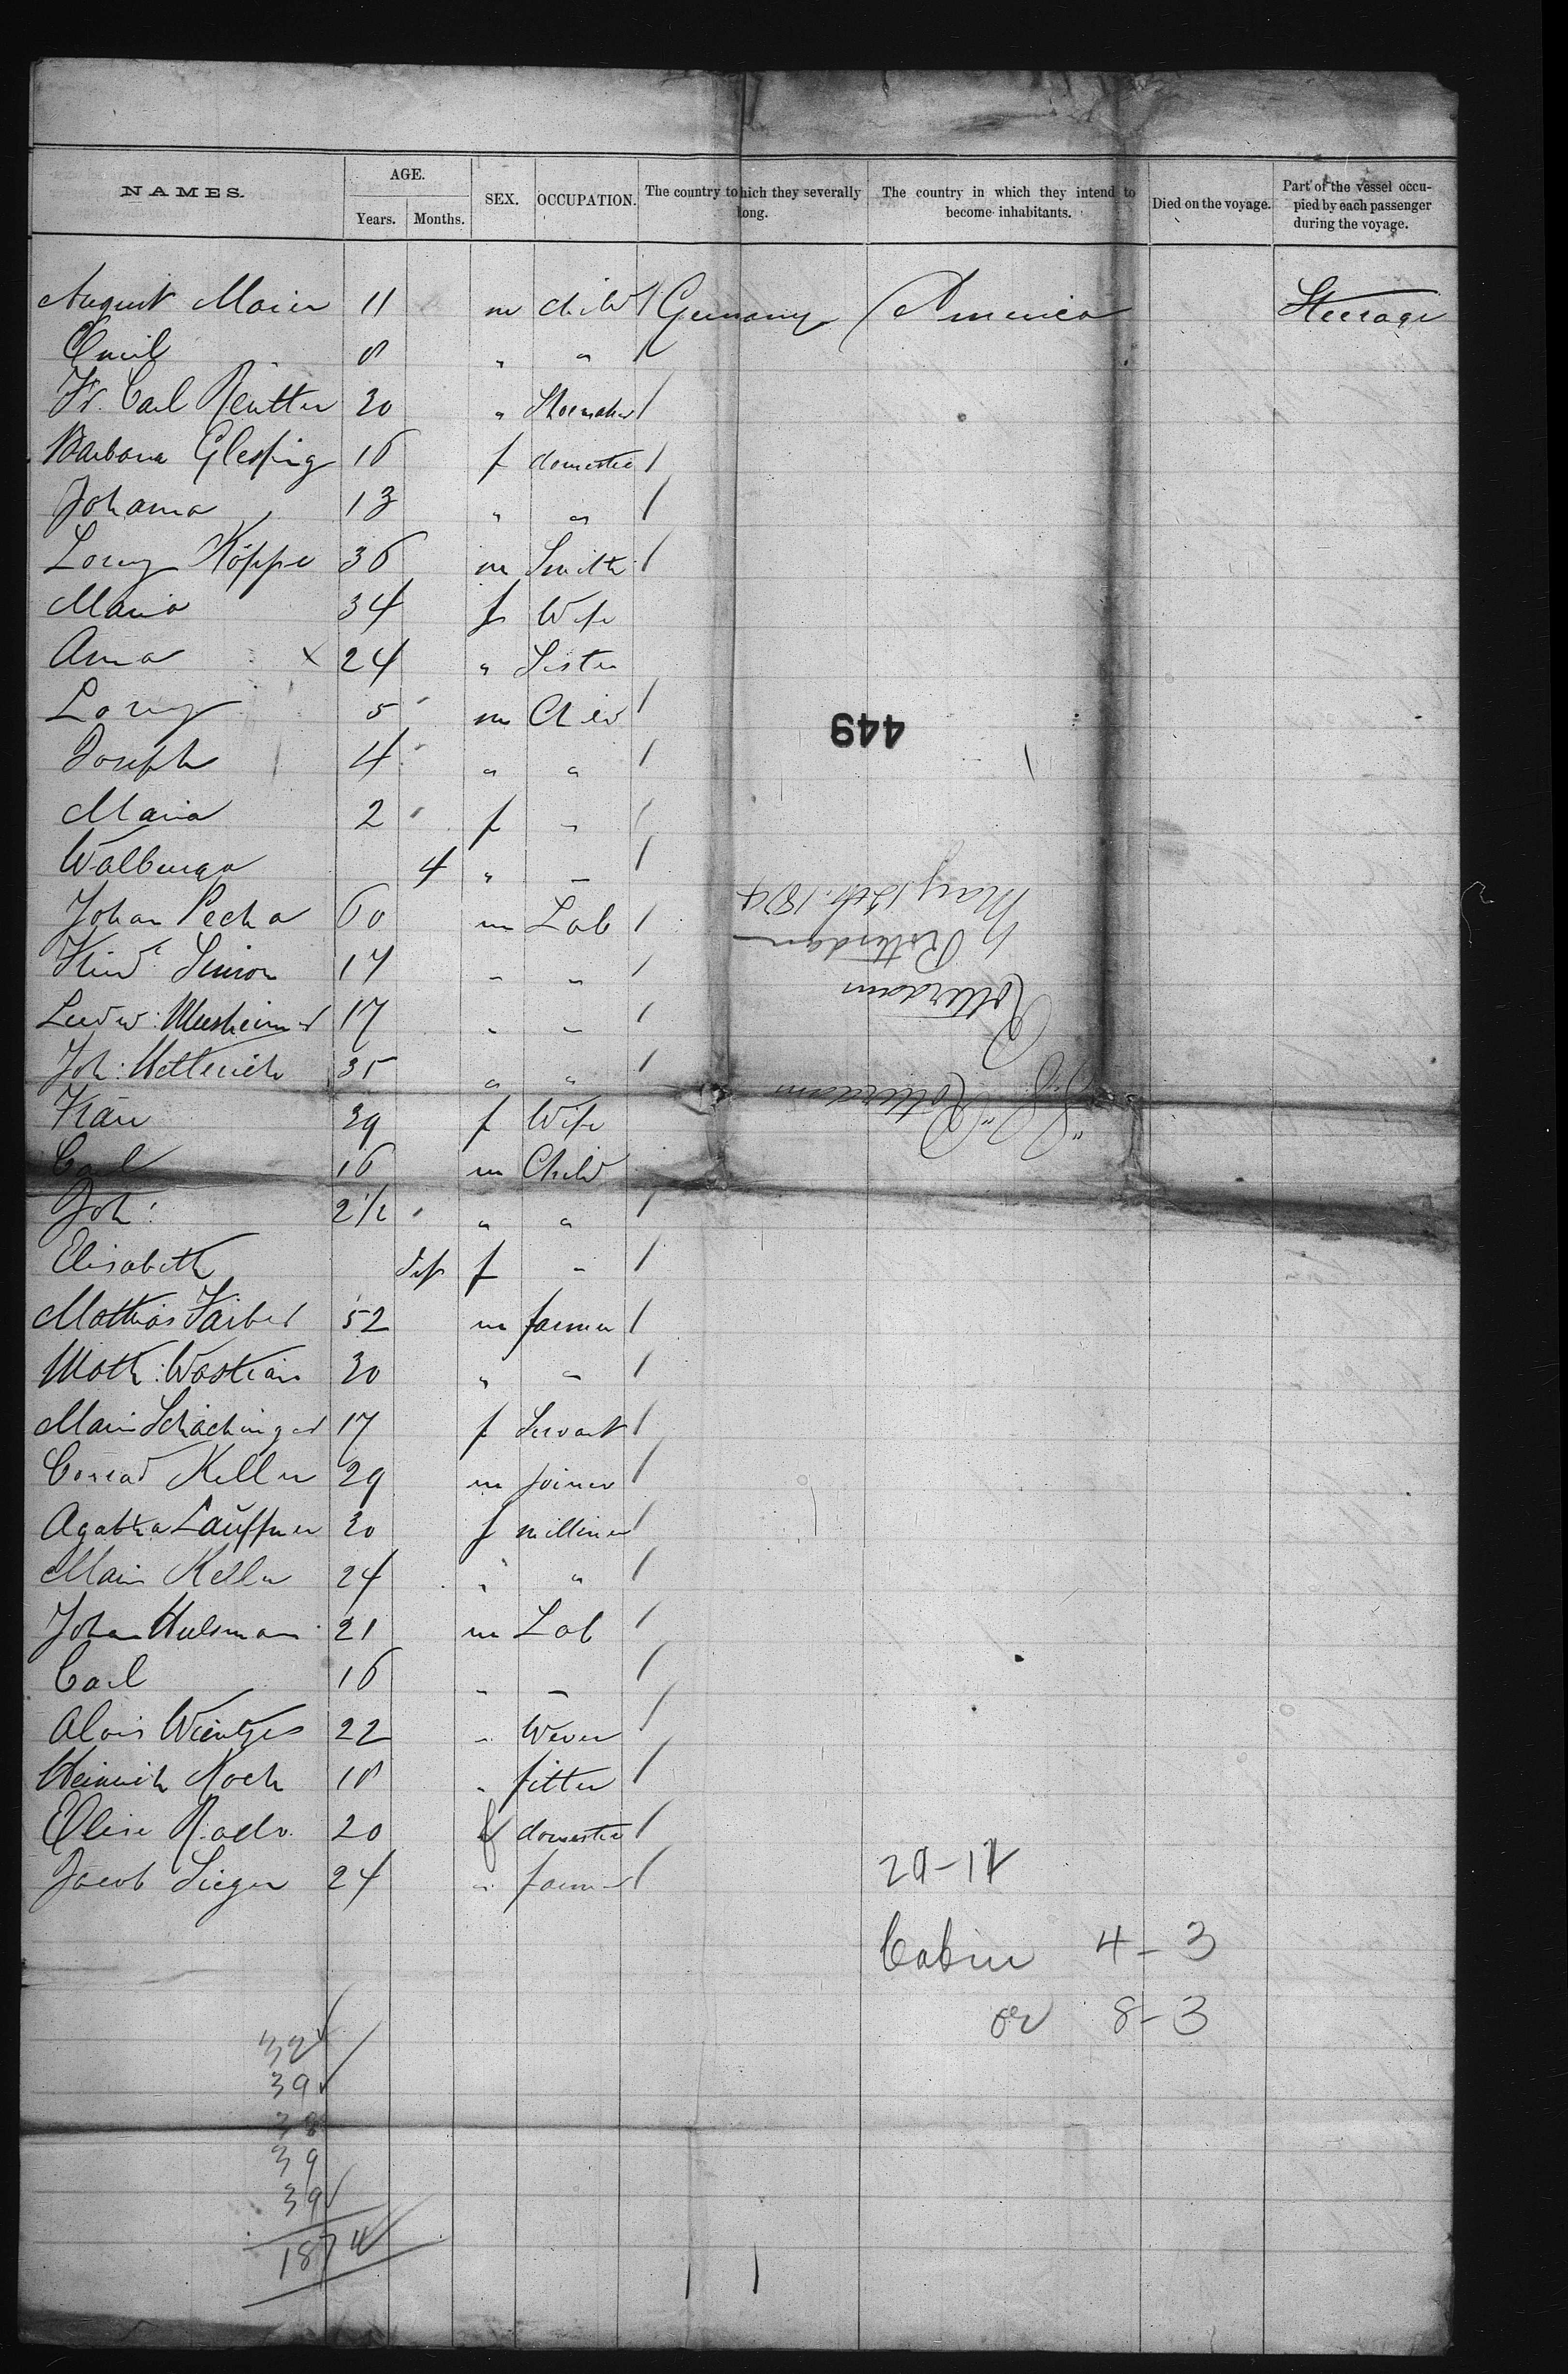 NAMES. AGE. SEX. OCCUPATION. The country to hich they severally long. The country in which they intend to become inhabitants. Died on the voyage. Part of the vessel occupied by each passenger during the voyage.
Years. Months.
August Maier 11 m child / Germany America Steerage
Emil 8 " " /
Fr. Carl Reutter 30 " Shoemaker /
Barbara 16 f domestic /
Johanna 13 " " /
Lorenz Köppe 36 m Smith /
Maria 34 f Wife
Anna x 24 " Sister
Lorenz 5 m Child /
449
Joseph 4 " " /
Maria 2 f " /
Walburga 4 " " /
May 12th. 1874
Johan Pecha 60 m Lab /
Rotterdam
Simon 17 " " /
Rotterdam
Ludw: 17 " " /
Joh: Hetterich 35 " " /
S.S. "Rotterdam"
39 f Wife
Carl 16 m Child
Joh: 2 1/2 " " /
Elisabeth f " /
Mathias Färber 52 m farmer /
Math: Wastian 30 " " /
Marie Schachinger 17 f Servant /
Conrad Keller 29 m joiner /
Agatha Lauffner 30 f milliner /
Marie Keller 24 " " /
Johan Hulsman 21 m Lab /
Carl 16 " " /
Alois Wientjes 22 " Wever /
Heinrich Koch 18 " fitter /
Elise Rado 20 f domestic /
Jacob Sieger 24 " farmer /
Cabin 4-3
or 8-3
32
39
38
39
39
187